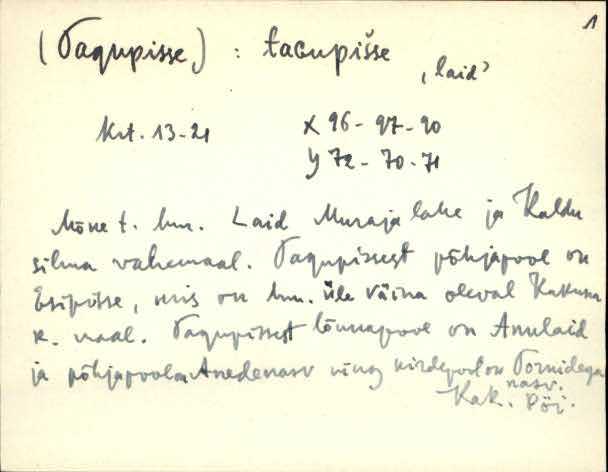 1
(Tagupisse) : taGupišse
‚laid’
Krt. 13-21 X 96 - 97 - 90
Y 72 - 70 - 71
Mõne t. hm. Laid Muraja lahe ja Kaldu
silma vahemaal. Tagupissest põhjapool on
Esipisse, mis on hm. üle väina oleval
k. maal. Tagupissest lõunapool on Anulaid
ja põhjapool on Anedenasv ning kirdepool on Tornidega
nasv.
Kak. Pöi.